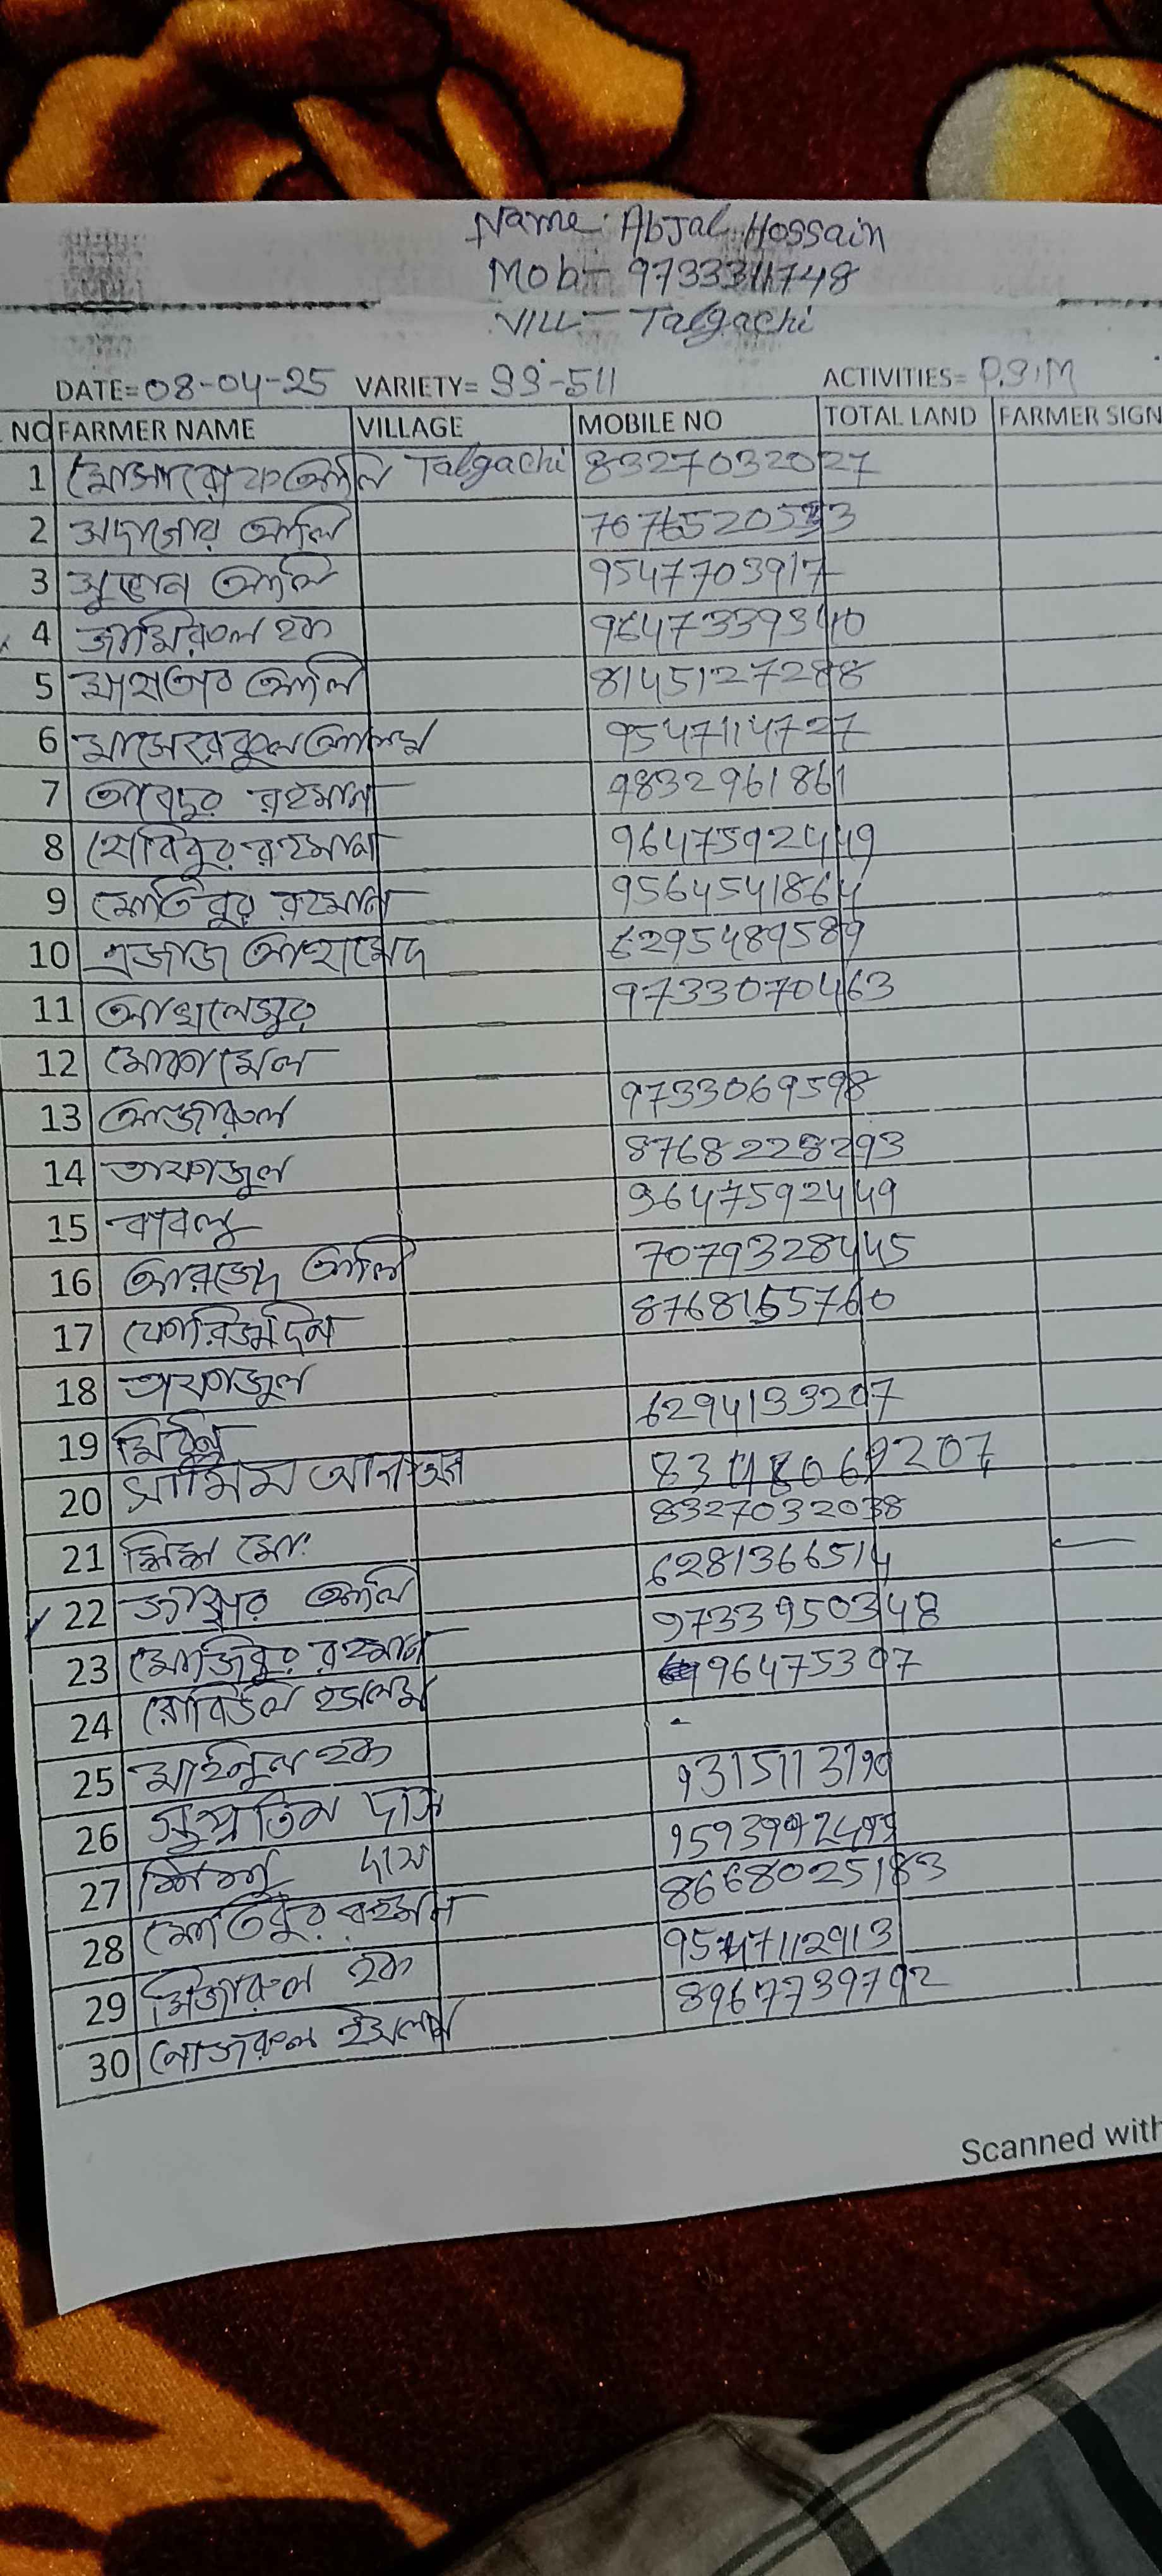 Name: Abjal Hossain
Mob- 9733311748
VILL- Talgachi
DATE= 08-04-25 VARIETY= SS-511 ACTIVITIES= P.S.M
NO FARMER NAME VILLAGE MOBILE NO TOTAL LAND FARMER SIGN
1 মোসারোফ আলি Talgachi 8327032027
2 আলি 7076520533
3 আলি 9547703917
4 জামিরুল হক 9647339340
5 মাহাতাব আলি 8145127288
6 9547114727
7 আবেদুর রহমান 9832961861
8 হাবিবুর রহমান 9647592449
9 মোতিবুর রহমান 9564541864
10 এজাজ আহামেদ 6295489589
11 9733070463
12 মোকামেল
13 আজারুল 9733069598
14 তাফাজুল 8768228293
15 বাবলু 9647592449
16 আরজেদ আলি 7079328445
17 8768155760
18 তাফাজুল
19 মিঠুন 6294133207
20 সামিম আকতার
21 মো: 8327032038
22 আলি 6281366514
23 মোজিবুর রহমান 9733950348
24 রোবিউল ইসলাম 996475307
25 মাইনুল হক -
26 সুপ্রতিম দাস 9315113190
27 দাস
28 মোতিবুর রহমান 8668025183
29 মিজারুল হক 9547112913
30 নোজরুল ইসলাম 8967739792
Scanned with